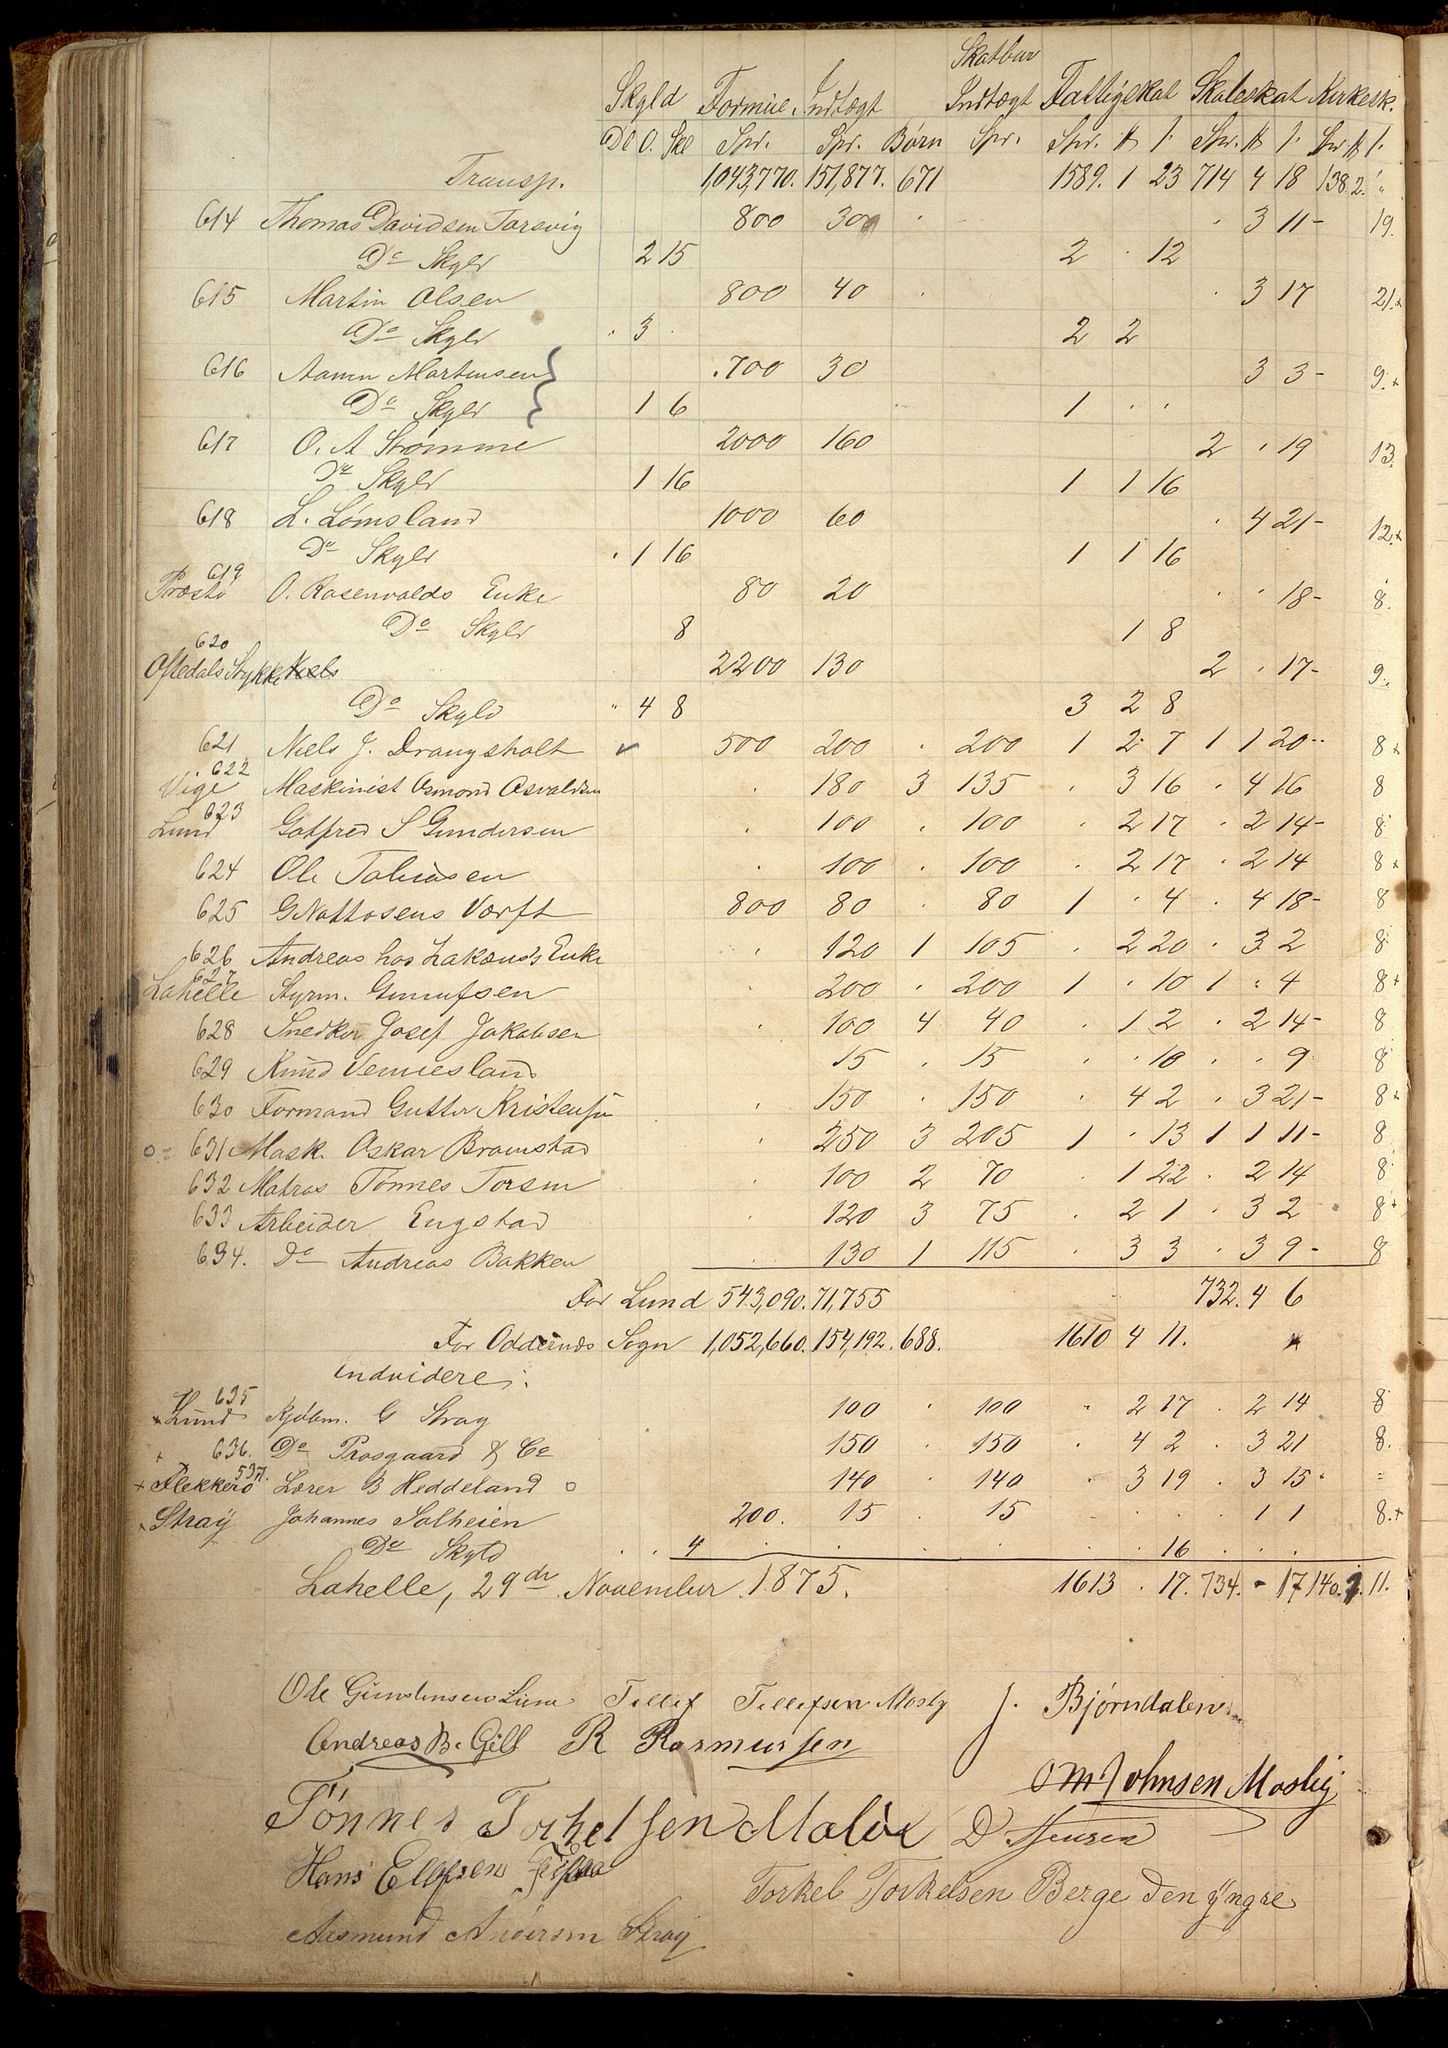 Skatbar
Skyld Formue. Indtægt Indtægt Fattigskat Skoleskat Kirkesk.
Dl O. Skl Spr. Spr. Børn Spr. Spr. # ſ. Spr. # ſ. Spr # ſ.
Transp. 1,043,770. 151,877. 671 1589. 1 23 714 4 18 138. 2. "
614 Thomas Davidsen Torsvig 800 300 . . 3 11 - 19.
Do Skyld 2 15 2 . 12
615 Martin Olsen 800 40 . . 3 17 21.+
Do Skyld . 3 . 2 2
616 Aanen Martensen .700 30 3 3 - 9.+
Do Skyld 1 6 1 . .
617 O. A Strømme 2000 160 2 . 19 13.
Do Skyld 1 16 1 1 16
618 L. Lømsland 1000 60 . 4 21 - 12.+
Do Skyld . 1 16 1 1 16
619
Præstø O. Rosenvolds Enke 80 20 . . 18 - 8.
Do Skyld 8 1 8
620
Oftedals Stykke Niels 2200 130 2 . 17 - 9.
Do Skyld " 4 8 3 2 8
621 Niels J. Drangsholt 500 200 . 200 1 2 7 1 1 20 8+
622
Vige Maskinist Osmond Osvaldsen . 180 3 135 . 3 16 . 4 16 8
623
Lund Gotfred S Gundersen . 100 . 100 . 2 17 . 2 14 - 8
624 Ole Tobiasen . 100 . 100 . 2 17 . 2 14 8+
625 G Nattosens Værft 800 80 . 80 1 . 4 . 4 18 - 8
626 Andreas hos Zakæus's Enke . 120 1 105 . 2 20 . 3 2 8
627
Lahelle Styrm. Gunufsen . 200 . 200 1 . 10 1 . 4 8+
628 Snedker Josef Jakobsen . 100 4 40 . 1 2 . 2 14 - 8
629 Knud Vennesland 15 . 15 . . 10 . . 9 8
630 Formand Gutter Kristensen . 150 . 150 . 4 2 . 3 21 - 8+
631 Mask. Oskar Bramstad . 250 3 205 1 . 13 1 1 11 - 8
632 Matros Tønnes Torsen . 100 2 70 . 1 22 . 2 14 8
633 Arbeider Engstad . 120 3 75 . 2 1 . 3 2 8+
634. Do Andreas Bakken . 130 1 115 . 3 3 . 3 9 - 8
For Lund 543,090. 71,755 732. 4 6
For Oddernes Sogn 1,052,660. 154,192. 688. 1610 4 11.
Endvidere:
635
+ Lund Kjøbm. G Stray 100 . 100 . 2 17 . 2 14 8
+ 636. Do Prosgaard & Co 150 . 150 . 4 2 . 3 21 8.
537.
+ Flekkerø Lærer B Heddeland o 140 . 140 . 3 19 . 3 15 =
Stray Johannes Solheien 200. 15 . 15 . . . 1 1 8.+
Do Skyld . . 4 . . . . . . 16 . . .
Lahelle, 29de November 1875. 1613 . 17. 734. - 17 140. 2. 11.
Ole Gundersen Lund Tellef Tellefsen Mosby J. Bjørndalen
Andreas B. Gill R Rasmussen
O M Johnsen Mosby
Tønnes Torkelsen D Jensen
Hans Ellefsen
Torkel Torkelsen Berge den yngre
Aasmund Andersen Stray